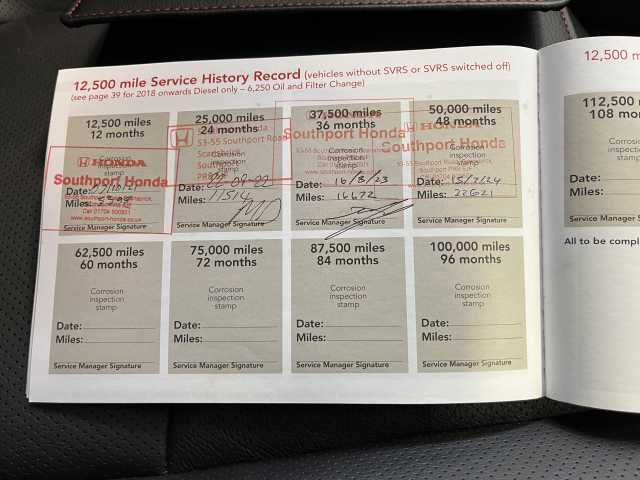 12,500 mile Service History Record (vehicles without SVRS or SVRS switched off)
(see page 39 for 2018 onwards Diesel only – 6,250 Oil and Filter Change)
12,500 miles
12 months
Corrosion
inspection
stamp
HONDA
Southport Honda
Date:
Miles:
Service Manager Signature
25,000 miles
24 months
Honda
53-55 Southport Road
Scarisbrick
Corrosion
inspection
stamp
Date: 22-09-22
Miles: 11514
Service Manager Signature
37,500 miles
36 months
Southport Honda
Corrosion
inspection
stamp
Date: 16/8/23
Miles: 16672
Service Manager Signature
50,000 miles
48 months
HONDA
Southport Honda
Corrosion
inspection
stamp
Date: 15/7/24
Miles: 22621
Service Manager Signature
62,500 miles
60 months
Corrosion
inspection
stamp
Date:
Miles:
Service Manager Signature
75,000 miles
72 months
Corrosion
inspection
stamp
Date:
Miles:
Service Manager Signature
87,500 miles
84 months
Corrosion
inspection
stamp
Date:
Miles:
Service Manager Signature
100,000 miles
96 months
Corrosion
inspection
stamp
Date:
Miles:
Service Manager Signature
12,500 m
112,500
108 mon
Date:
Miles:
Service Manager
All to be compl